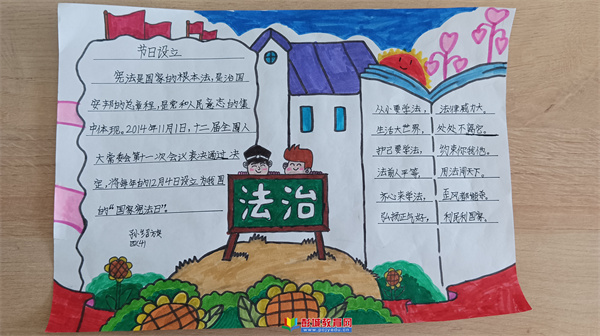 节日设立
宪法是国家的根本法,是治国
安邦的总章程,是党和人民意志的集
中体现。2014年11月1日,十二届全国人
大常委会第十一次会议表决通过决
定,将每年的12月4日设立为我国
的“国家宪法日”。
四(4)
法治
从小要学法, 法律威力大,
生活大世界, 处处不离它。
护己要学法, 约束你我他。
法前人平等, 用法闯天下。
齐心来学法,
弘扬正与好, 利民利国家。
彭城教育网